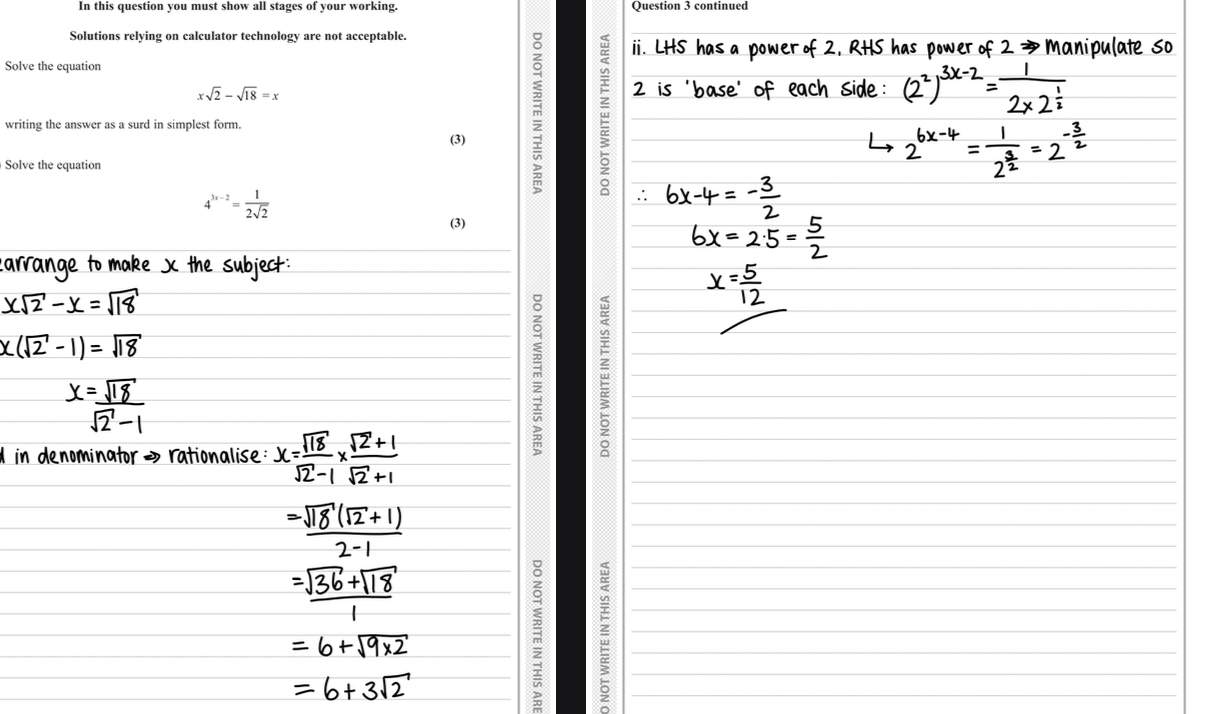 In this question you must show all stages of your working.
Solutions relying on calculator technology are not acceptable.
Solve the equation
x√2 − √18 = x
writing the answer as a surd in simplest form.
(3)
Solve the equation
4^(3x−2) = 1/(2√2)
(3)
arrange to make x the subject:
x√2 − x = √18
x(√2 − 1) = √18
x = √18/(√2 − 1)
in denominator ⇒ rationalise: x = √18/(√2−1) × (√2+1)/(√2+1)
= √18(√2+1)/(2−1)
= (√36+√18)/1
= 6+√(9×2)
= 6+3√2
DO NOT WRITE IN THIS AREA
DO NOT WRITE IN THIS AREA
DO NOT WRITE IN THIS ARE
DO NOT WRITE IN THIS AREA
DO NOT WRITE IN THIS AREA
O NOT WRITE IN THIS AREA
Question 3 continued
ii. LHS has a power of 2, RHS has power of 2 ⇒ manipulate so
2 is 'base' of each side: (2²)^(3x−2) = 1/(2×2^(1/2))
↳ 2^(6x−4) = 1/2^(3/2) = 2^(−3/2)
∴ 6x−4 = −3/2
6x = 2·5 = 5/2
x = 5/12